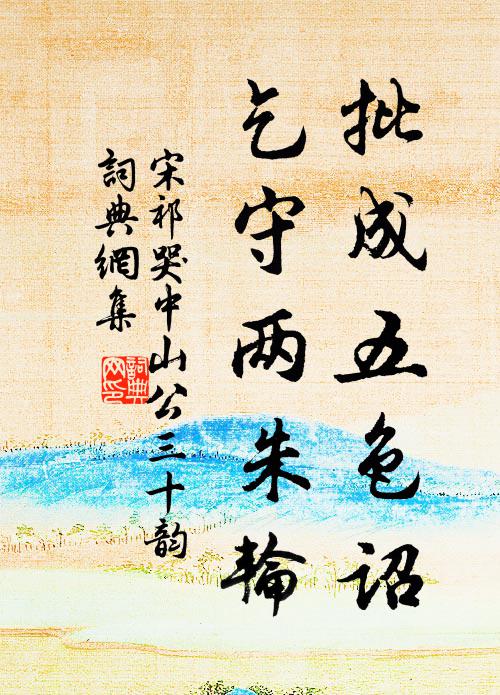 批成五色詔
乞守两朱輪
宋祁哭中山公三十韵
詞典網集
詞典網印